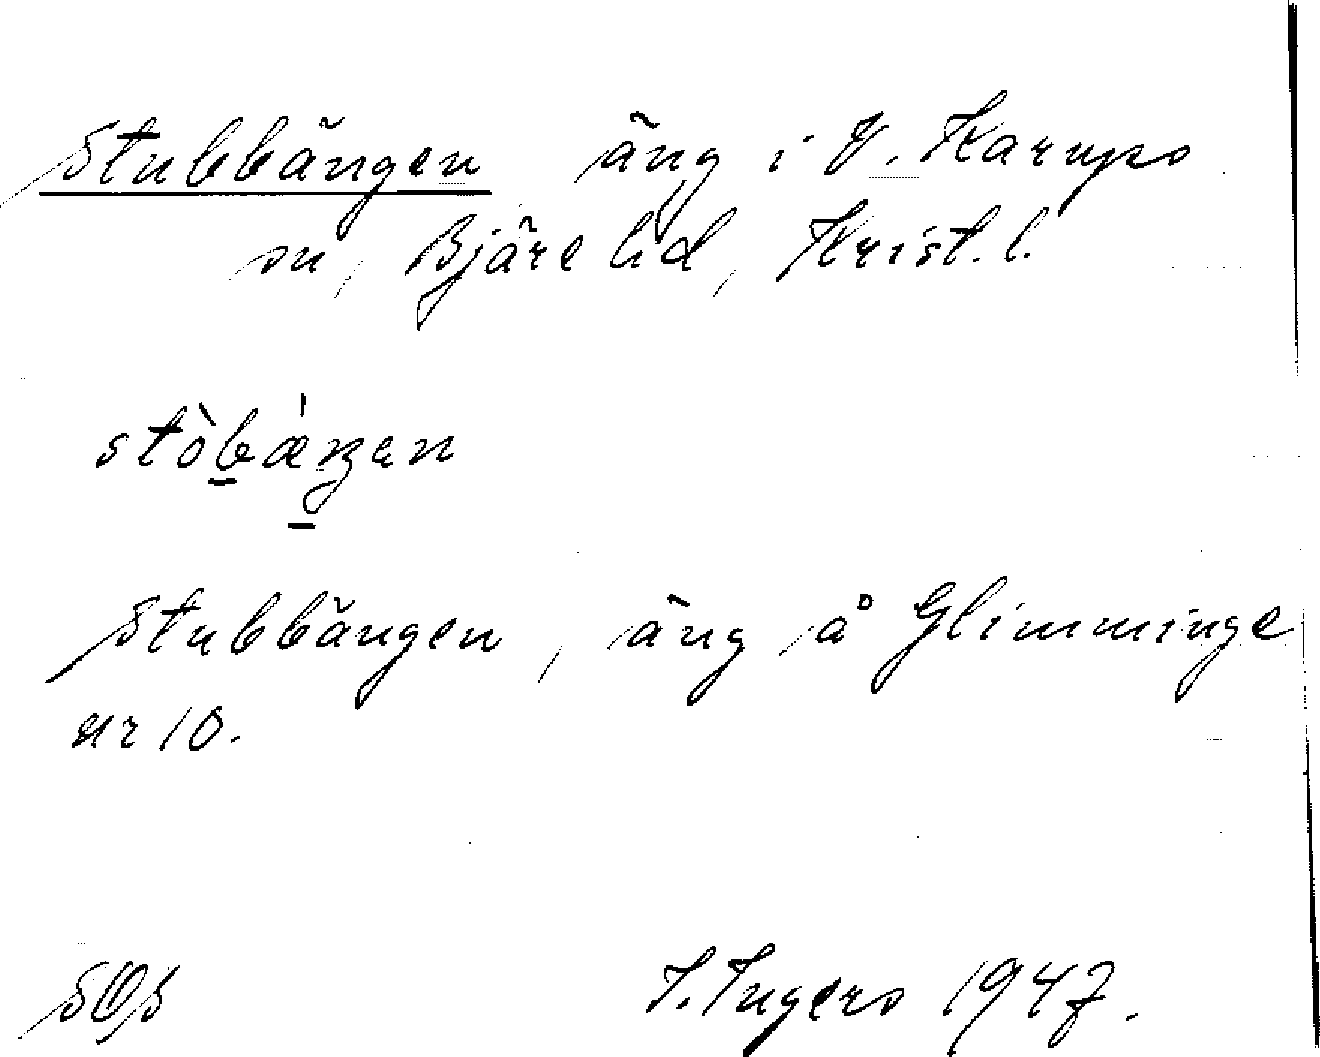 Stubbängen äng i V. Karups
sn, Bjäre hd, Krist. l.
stòbæ̀ŋen
Stubbängen, äng å Glimminge
nr 10.
SOS I. Ingers 1947.